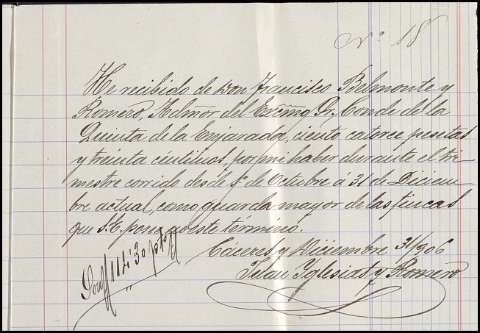 Nº 18
He recibido de Don Francisco Belmonte y
Romero, Admor del Excmo Sr. Conde de la
Quinta de la Enjarada, ciento catorce pesetas
y treinta centimos, por mi haber durante el tri-
mestre corrido desde 1º de Octubre á 31 de Diciem-
bre actual, como guarda mayor de las fincas
que S.E. posee en este término.
Cáceres y Diciembre 31/906
Iglesias y Romero
Son 114'30 ptas